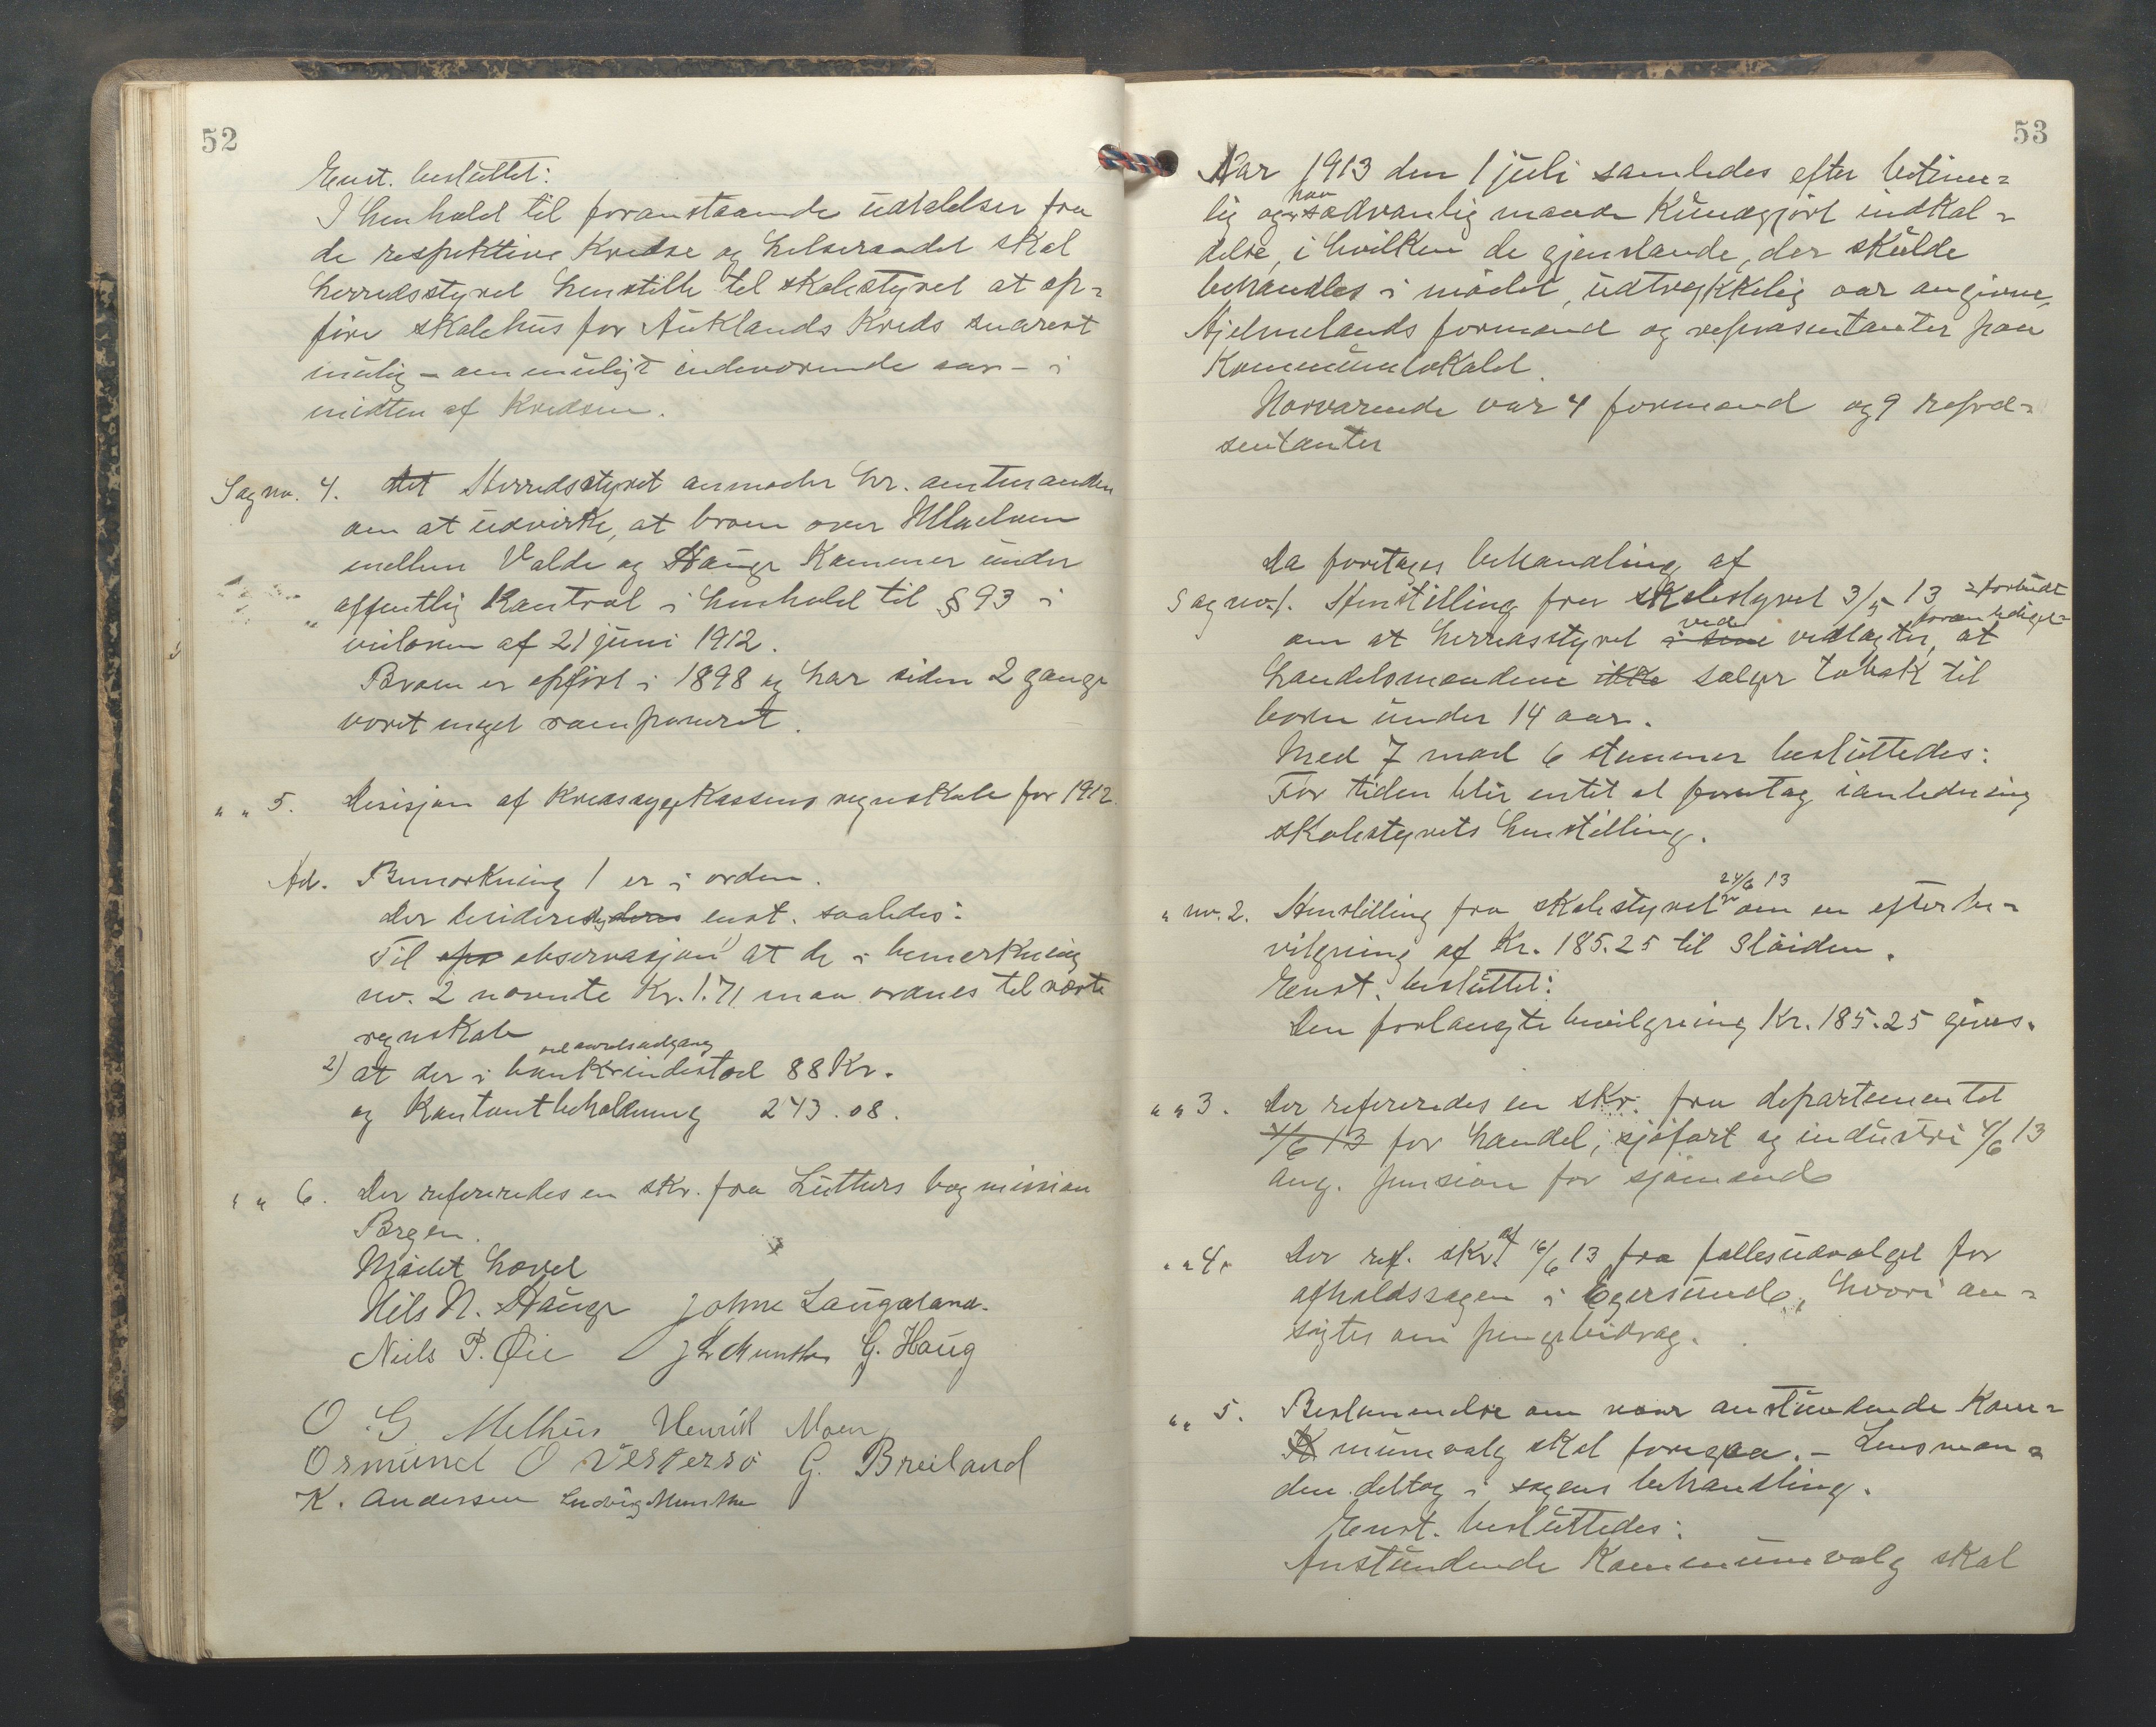 52
Enst. besluttet:
I henhold til foranstaaende udtalelser fra
de respektive kredse og helseraadet skal
herredsstyret henstille til skolestyret at op-
føre skolehus for Auklands kreds snarest
mulig - om muligt indeværende aar - i
midten af kredsen.
Sag no. 4. Det Herredsstyret anmoder hr. amtmanden
om at udvirke, at broen over Ullaelven
mellem Valde og Hauge kommer under
offentlig kontrol i henhold til § 93 i
veiloven af 21 juni 1912.
Broen er opført i 1898 og har siden 2 gange
været meget ramponeret.
" " 5. Desisjon af kredssygekassens regnskab for 1912.
Ad. Bemærkning 1 er i orden.
Der desideredes enst. saaledes:
Til observasjon 1) at de i bemerkning
no. 2 nævnte Kr. 1.71 maa ordnes til næste
regnskab
ved aarets udgang
2) at der i bank indestod 88 Kr.
og Kontantbeholdning 243.08.
" " 6. Der refereredes en skr. fra Luthers bogmission
Bergen.
Mødet hævet
Nils N. Hauge Johne Laugaland.
Niels P. Øie J L Munthe G. Haug
O G Melhus Henrik Moen
Osmund O Vestersø G. Breiland
K. Andersen Ludvig Munthe
53
Aar 1913 den 1 juli samledes efter betime-
paa
lig og sædvanlig maade kundgjort indkal-
delse, i hvilken de gjenstande, der skulde
behandles i mødet, udtrykkelig var angivne,
Hjelmelands formænd og repræsentanter paa
Kommunelokalet.
Nærværende var 4 formænd og 9 repræ-
sentanter
Da foretages behandling af
Sag no. 1. Henstilling fra skolestyret 3/5 13
ved
om at herredsstyret i sine vedtægter, at
handelsmændene ikke sælger tobak til
børn under 14 aar.
Med 7 mod 6 stemmer besluttedes:
For tiden blir intet at foretag i anledning
skolestyrets henstilling.
24/6 13
" no. 2. Henstilling fra skolestyret om en efterbe-
vilgning af Kr. 185.25 til Sløiden.
Enst. besluttet:
Den forlangte bevilgning Kr. 185.25 gives.
" " 3. Der refereredes en skr. fra departementet
4/6 13 for handel, sjøfart og industri 4/6 13
ang. pension for sjømænd
af
" " 4. Der ref. skr. 16/6 13 fra fællesudvalget for
afholdssagen i Egersund, hvori an-
søgtes om pengebidrag.
" " 5. Bestemmelse om naar anstundende kom-
munevalg skal foregaa. - Lensman-
den deltog i sagens behandling.
Enst. besluttedes:
Anstundende kommunevalg skal